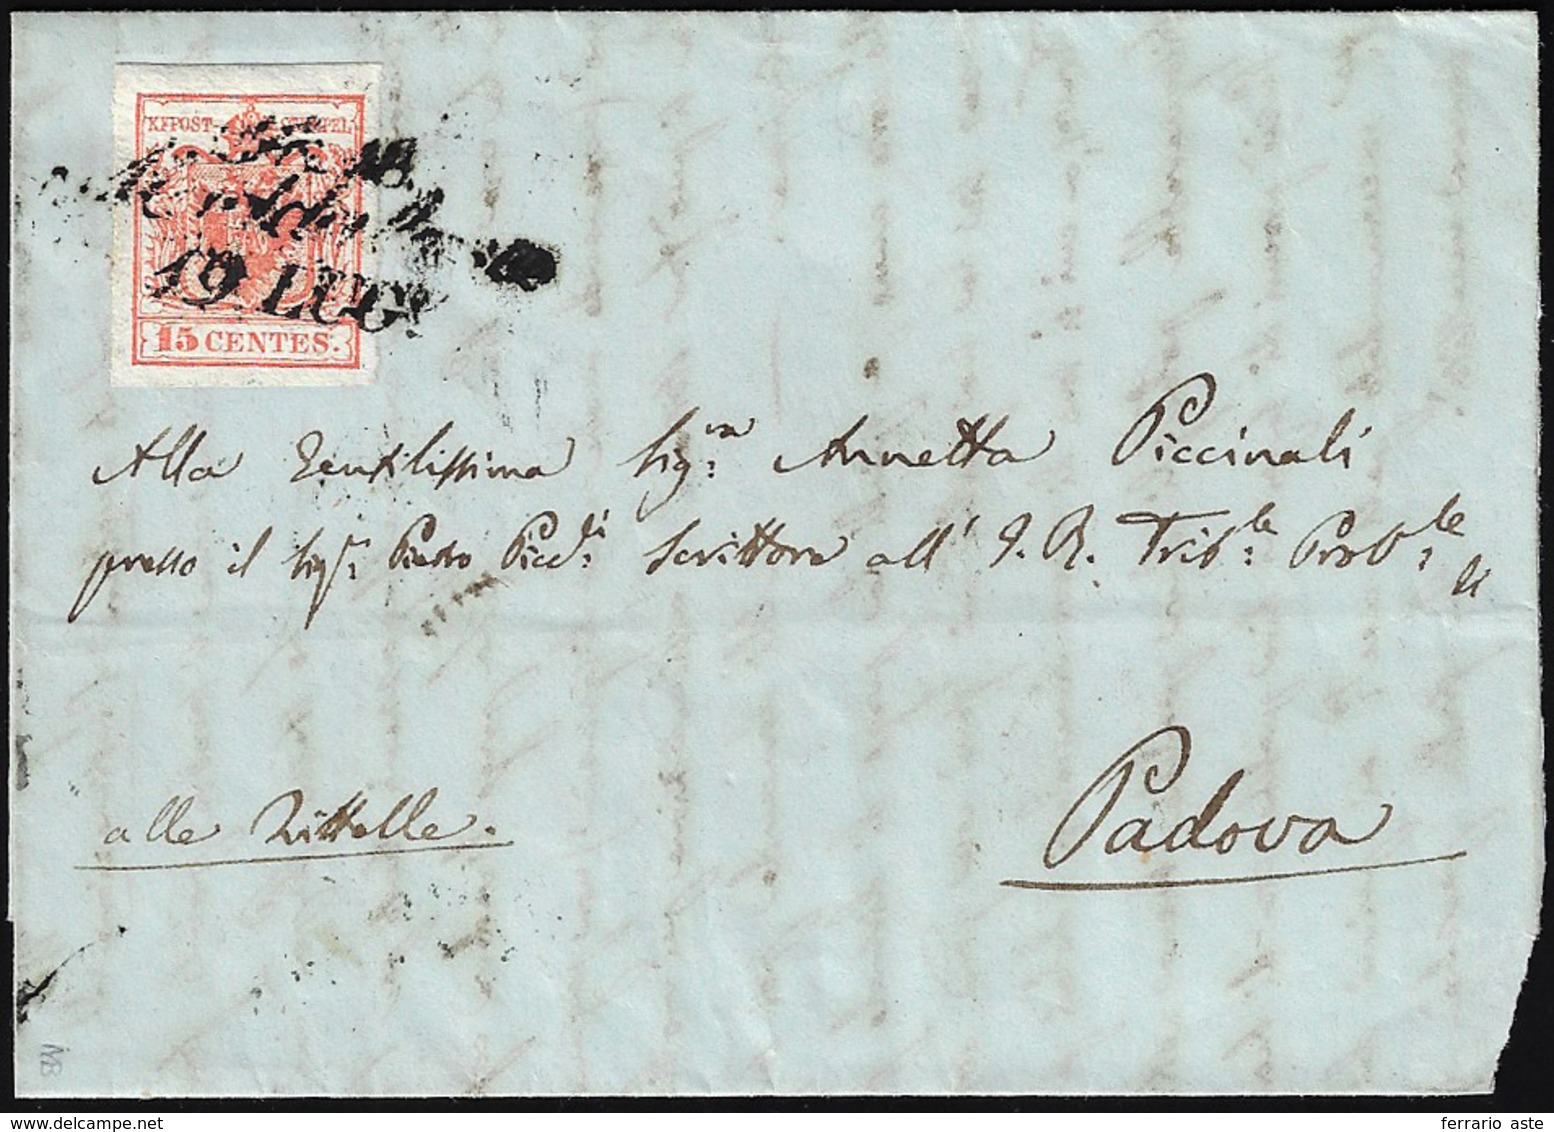 KKPOST-STEMPEL
19. LUG.
15 CENTES.
Alla Gentilissima Sig:ra Annetta Piccinali
presso il Sig:r Pietro Picc:li Scrittore all' I. R. Trib:le Prov:le di
alle Zittelle.
Padova
ferrario aste